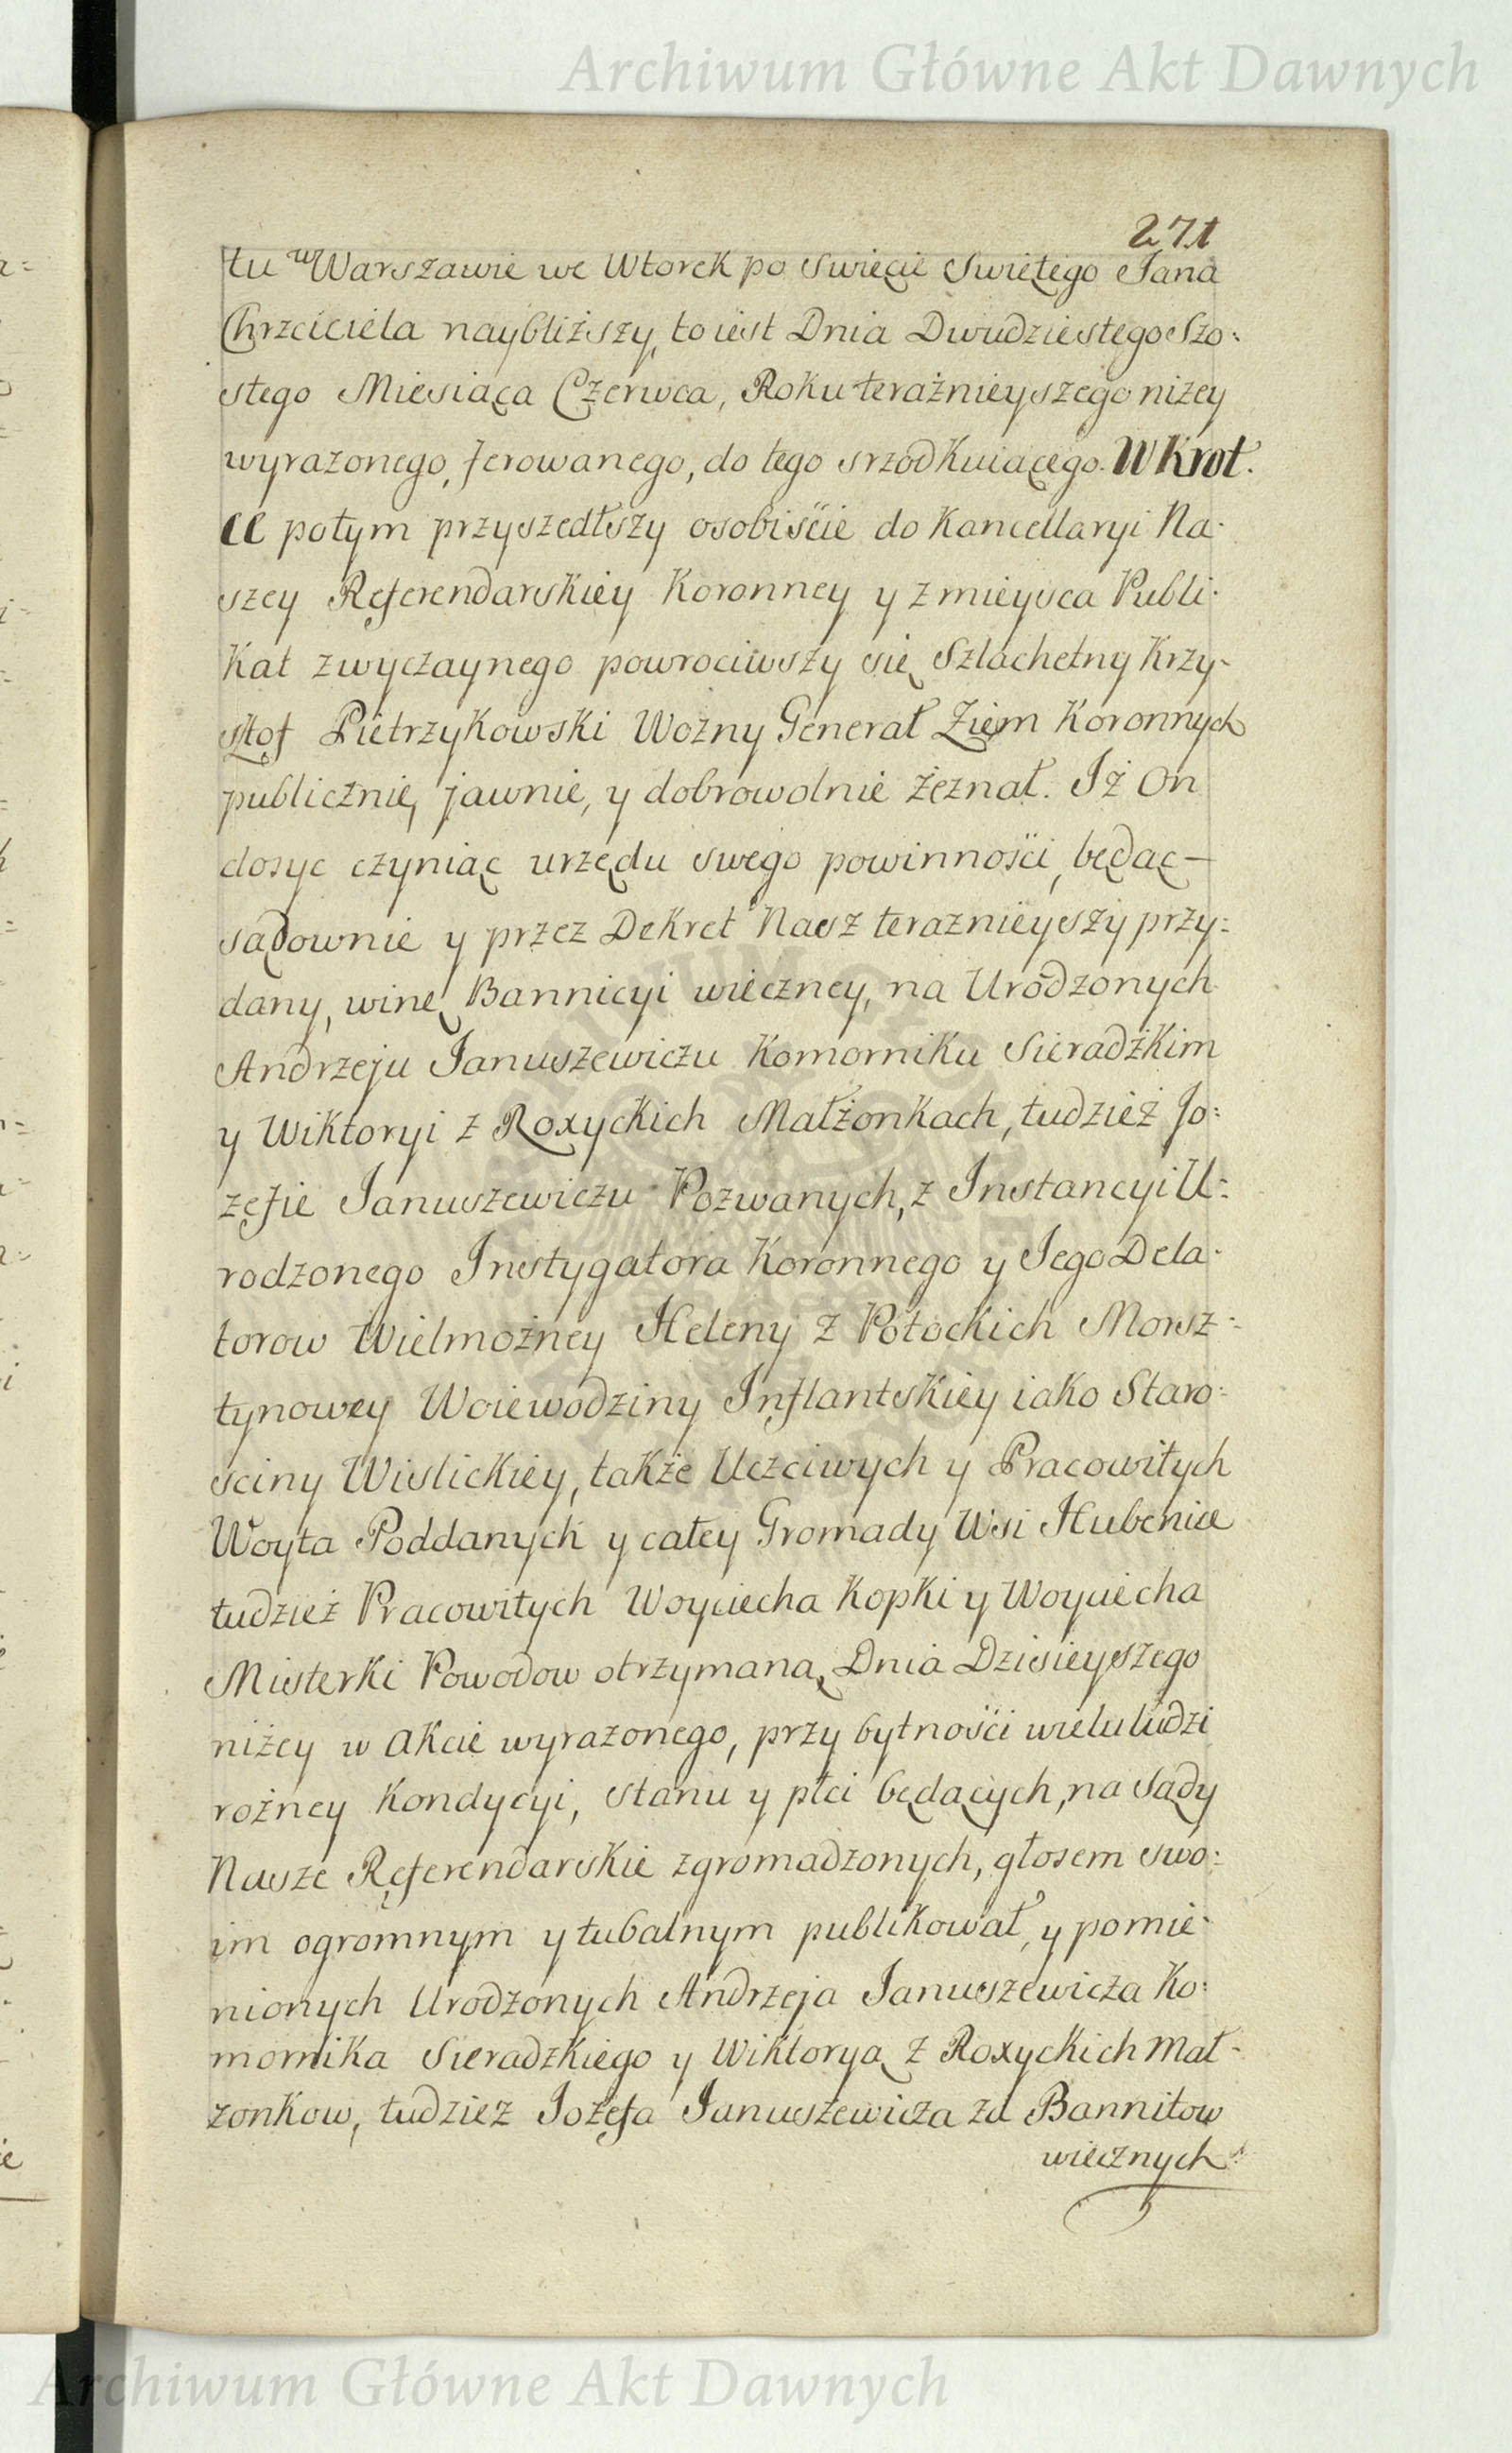 Archiwum Główne Akt Dawnych
271
tu w Warszawie we Wtorek po Swięcie Swiętego Jana
Chrzciciela naybliższy, to iest Dnia Dwudziestego Szo:
stego Miesiąca Czerwca, Roku teraźnieyszego niżey
wyrażonego, ferowanego, do tego srzodkuiącego. W Krot.
ce potym przyszedłszy osobiście do Kancellaryi Na:
szey Referendarskiey Koronney y z mieysca Publi:
kat zwyczaynego powrociwszy się Szlachetny Krzy-
sztof Pietrzykowski Woźny Generał Ziem Koronnych
publicznie, jawnie, y dobrowolnie zeznał. Iż On
dosyc czyniąc urzędu swego powinności, będąc —
sądownie y przez Dekret Nasz teraznieyszy przy:
dany, winę Bannicyi wieczney, na Urodzonych
Andrzeju Januszewiczu Komorniku Sieradzkim
y Wiktoryi z Roxyckich Małżonkach, tudzież Jo:
zefie Januszewiczu Pozwanych, z Instancyi U:
rodzonego Instygatora Koronnego y Jego Dela:
torow Wielmożney Heleny z Potockich Morsz:
tynowey Woiewodziny Inflantskiey iako Staro:
sciny Wislickiey, także Uczciwych y Pracowitych
Woyta Poddanych y całey Gromady Wsi Hubenice
tudzież Pracowitych Woyciecha Kopki y Woyciecha
Misterki Powodow otrzymaną, Dnia Dzisieyszego
niżey w Akcie wyrażonego, przy bytności wielu ludzi
rożney Kondycyi, stanu y płci będących, na Sądy
Nasze Referendarskie zgromadzonych, głosem swo:
im ogromnym y tubalnym publikował, y pomie:
nionych Urodzonych Andrzeja Januszewicza Ko:
mornika Sieradzkiego y Wiktoryą z Roxyckich Mał:
zonkow, tudziez Jozefa Januszewicza za Bannitow
wiecznych
Archiwum Główne Akt Dawnych